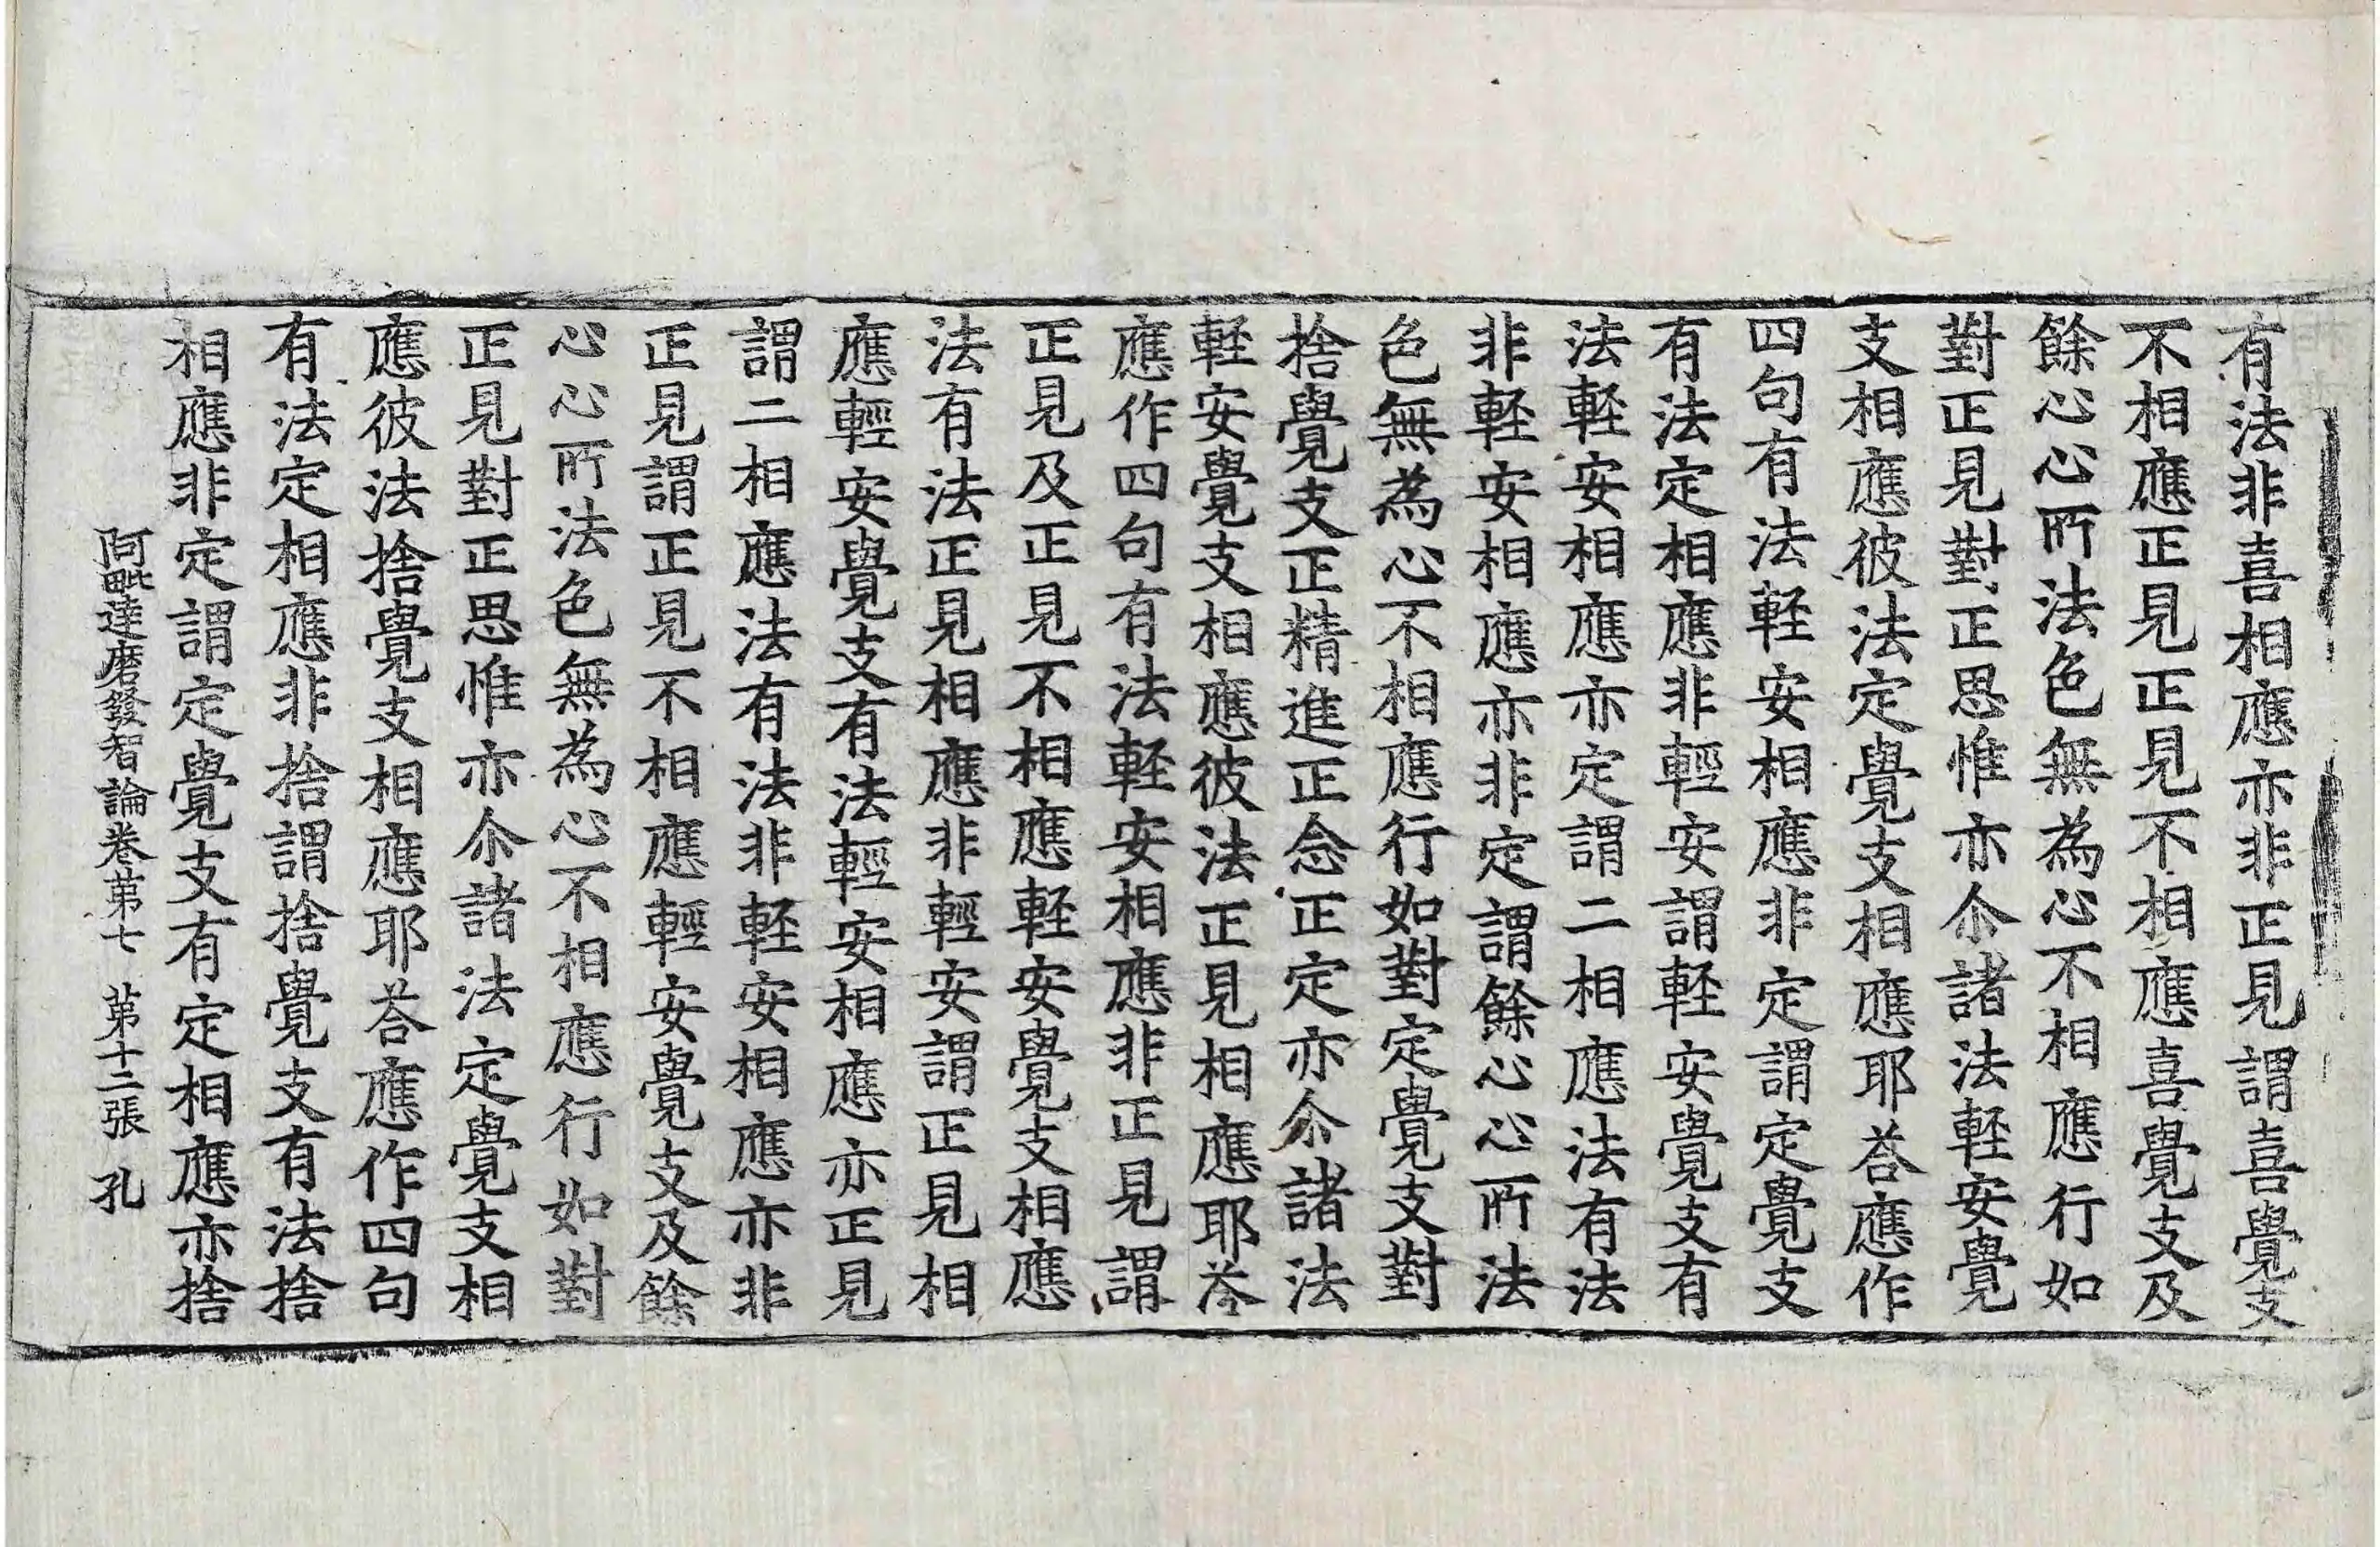 有法非喜相應亦非正見謂喜覺支
不相應正見正見不相應喜覺支及
餘心心所法色無為心不相應行如
對正見對正思惟亦尒諸法軽安覺
支相應彼法定覺支相應耶荅應作
四句有法軽安相應非定謂定覺支
有法定相應非輕安謂軽安覺支有
法軽安相應亦定謂二相應法有法
非軽安相應亦非定謂餘心心所法
色無為心不相應行如對定覺支對
捨覺支正精進正念正定亦尒諸法
軽安覺支相應彼法正見相應耶荅
應作四句有法軽安相應非正見謂
正見及正見不相應軽安覺支相應
法有法正見相應非輕安謂正見相
應輕安覺支有法輕安相應亦正見
謂二相應法有法非軽安相應亦非
正見謂正見不相應輕安覺支及餘
心心所法色無為心不相應行如對
正見對正思惟亦尒諸法定覺支相
應彼法捨覺支相應耶荅應作四句
有法定相應非捨謂捨覺支有法捨
相應非定謂定覺支有定相應亦捨
阿毗達磨發智論卷苐七 苐十二張 孔